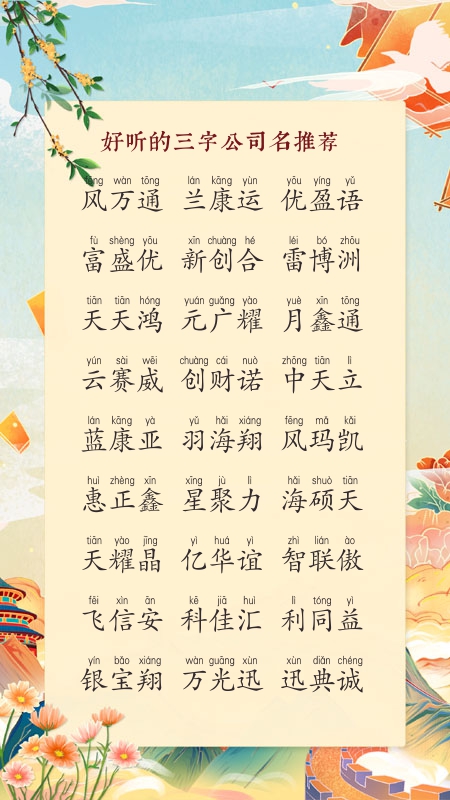 好听的三字公司名推荐
fēng wàn tōng lán kāng yùn yōu yíng yǔ
风万通 兰康运 优盈语
fù shèng yōu xīn chuàng hé léi bó zhōu
富盛优 新创合 雷博洲
tiān tiān hóng yuán guǎng yào yuè xīn tōng
天天鸿 元广耀 月鑫通
yún sài wēi chuàng cái nuò zhōng tiān lì
云赛威 创财诺 中天立
lán kāng yà yǔ hǎi xiáng fēng mǎ kǎi
蓝康亚 羽海翔 风玛凯
huì zhèng xīn xīng jù lì hǎi shuò tiān
惠正鑫 星聚力 海硕天
tiān yào jīng yì huá yì zhì lián ào
天耀晶 亿华谊 智联傲
fēi xìn ān kē jiā huì lì tóng yì
飞信安 科佳汇 利同益
yín bǎo xiáng wàn guāng xùn xùn diǎn chéng
银宝翔 万光迅 迅典诚